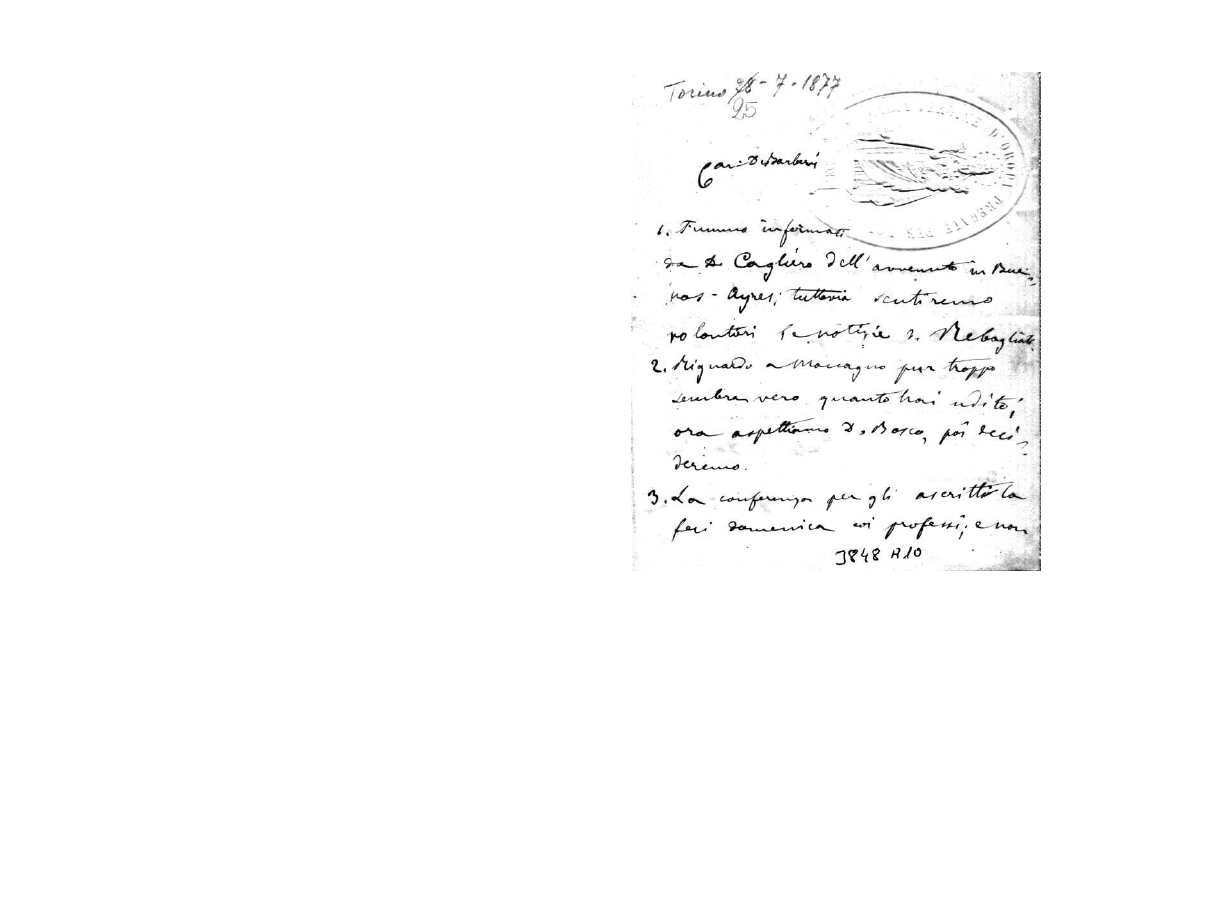 Torino 26 - 7 - 1877
25
Car. D. Barberis
VERGINE D'OROPA PREGATE PER
1. Fummo informati
da D. Cagliero dell'avvenuto in Bue-
nos - Ayres; tuttavia sentiremo
volontieri le notizie di Rebagliati.
2. Riguardo a Maccagno pur troppo
sembra vero quanto hai udito;
ora aspettiamo D. Bosco, poi deci-
deremo.
3. La conferenza per gli ascritti la
feci domenica coi professi; e non
3848 A10